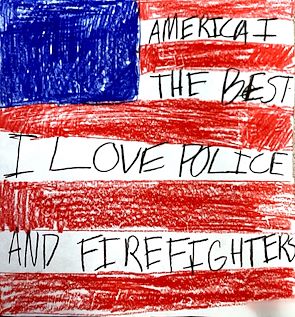 AMERICA I
THE BEST
I LOVE POLICE
AND FIREFIGHTERS